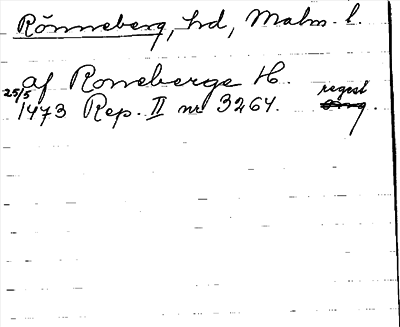 Rönneberg, hd, Malm. l.
af Roneberge H.
25/5 1473 Rep. II nr 3264. regest